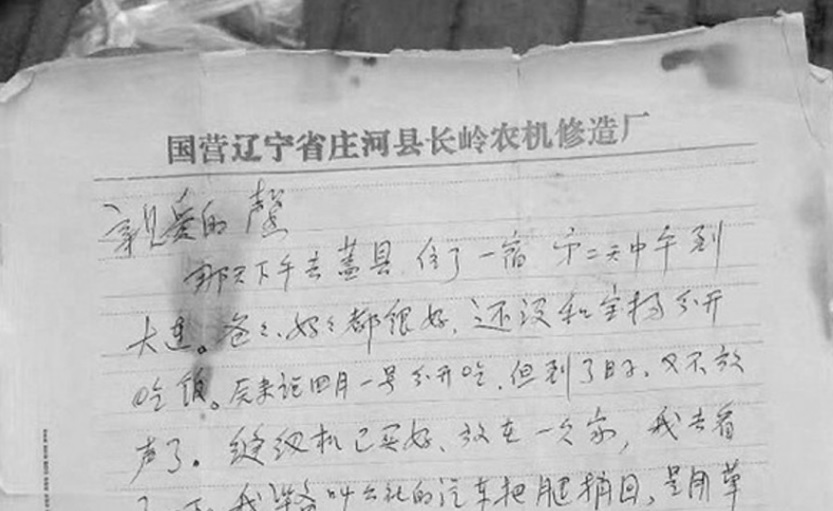 国营辽宁省庄河县长岭农机修造厂
亲爱的馨
那天下午去盖县,住了一宿 第二天中午到
大连。爸爸、妈妈都很好,还没和宝扬分开
吃饭。原来说四月一号分开吃,但到了日子,又不放
声了。缝纫机已买好、放在一久家,我去看
我准备叫公社的汽车把腿捎回,是用草